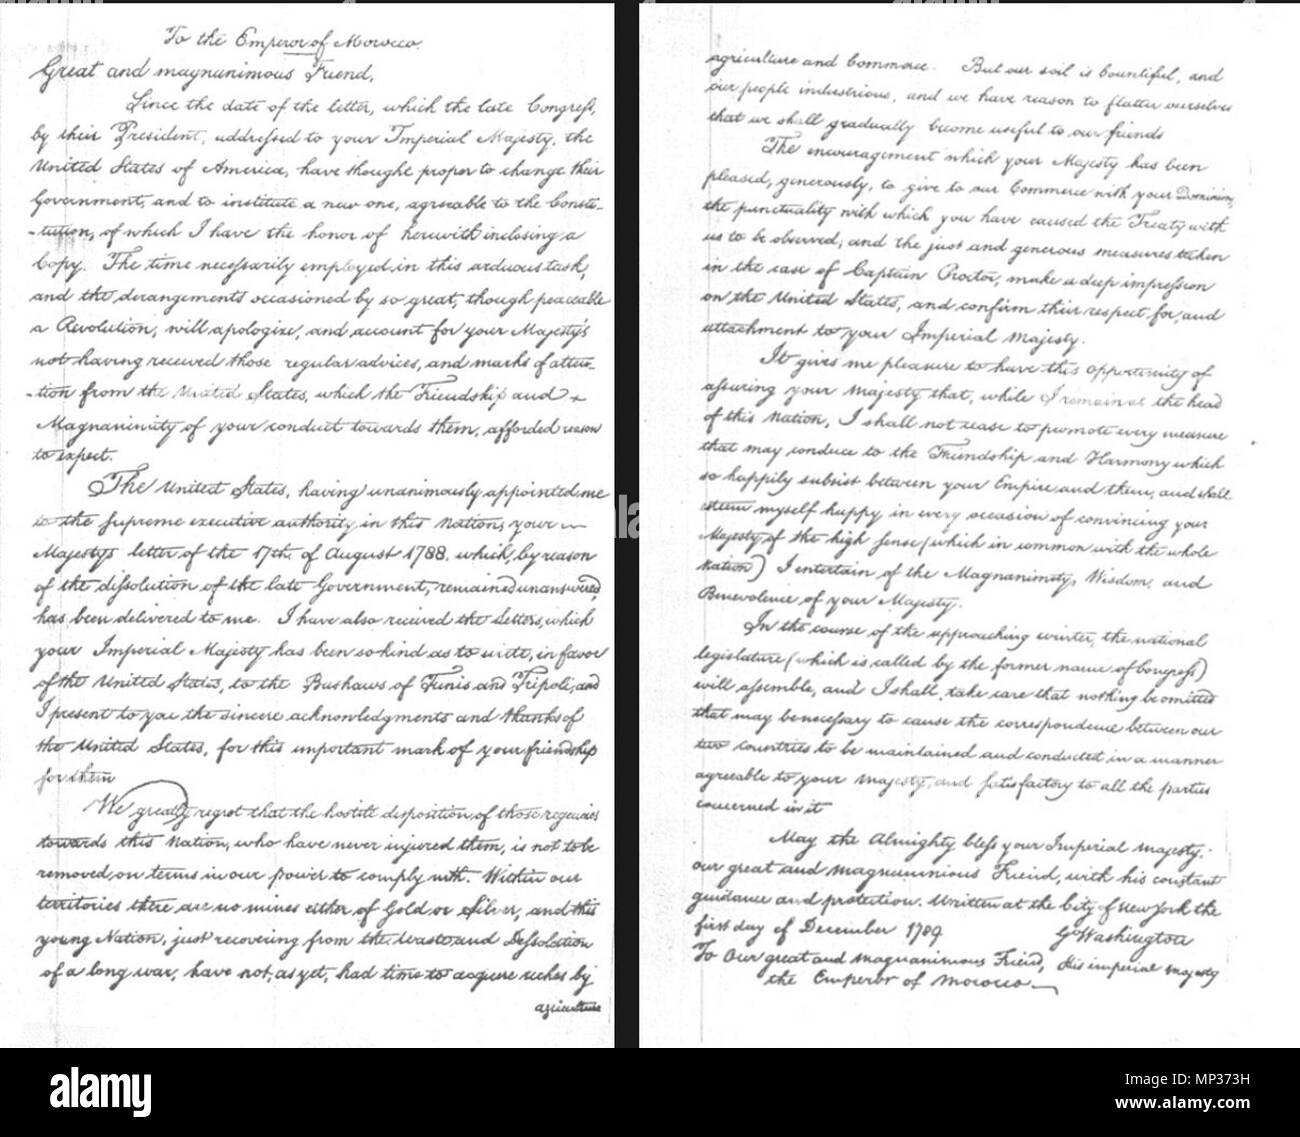 To the Emperor of Morocco.
Great and magnanimous Friend,
Since the date of the letter, which the late Congress,
by their President, addressed to your Imperial Majesty, the
United States of America, have thought proper to change their
Government, and to institute a new one, agreeable to the Consti-
-tution, of which I have the honor of herewith inclosing a
Copy. The time necessarily employed in this arduous task,
and the derangements occasioned by so great, though peaceable
a Revolution, will apologize, and account for your Majesty's
not having received those regular advices, and marks of atten-
-tion from the United States, which the Friendship and
Magnanimity of your conduct towards them, afforded reason
to expect.
The United States, having unanimously appointed me
to the supreme executive authority, in this Nation, your
Majesty's letter of the 17th. of August 1788. which, by reason
of the dissolution of the late Government, remained unanswered,
has been delivered to me. I have also received the Letters, which
your Imperial Majesty has been so kind as to write, in favor
of the United States, to the Bashaws of Tunis and Tripoli, and
I present to you the sincere acknowledgments and thanks of
the United States, for this important mark of your friendship
for them
We greatly regret that the hostile disposition of those regencies
towards this Nation, who have never injured them, is not to be
removed, on terms in our power to comply with. Within our
territories there are no mines either of Gold or Silver, and this
young Nation, just recovering from the Waste and Dessolation
of a long war, have not, as yet, had time to acquire riches by
agriculture
agriculture and Commerce. But our soil is bountiful, and
our people industrious, and we have reason to flatter ourselves
that we shall gradually become useful to our friends
The encouragement which your Majesty has been
pleased, generously, to give to our Commerce with your Dominions,
the punctuality with which you have caused the Treaty with
us to be observed, and the just and generous measures taken
in the case of Captain Proctor, make a deep impression
on the United States, and confirm their respect for, and
attachment to your Imperial Majesty.
It gives me pleasure to have this opportunity of
assuring your Majesty that, while I remain at the head
of this Nation, I shall not cease to promote every measure
that may conduce to the Friendship and Harmony which
so happily subsist between your Empire and them, and shall
esteem myself happy in every occasion of convincing your
Majesty of the high sense (which in common with the whole
nation) I entertain of the Magnanimity, Wisdom, and
Benevolence of your Majesty.
In the course of the approaching winter, the national
legislature (which is called by the former name of Congress)
will assemble, and I shall take care that nothing be omitted
that may be necessary to cause the correspondence between our
two countries to be maintained and conducted in a manner
agreeable to your Majesty, and satisfactory to all the parties
concerned in it
May the Almighty bless your Imperial Majesty,
our great and magnanimous Friend, with his constant
guidance and protection. Written at the City of New York the
first day of December 1789
Go Washington
To Our great and magnanimous Friend, His imperial Majesty
the Emperor of Morocco
alamy
Image ID: MP373H
www.alamy.com